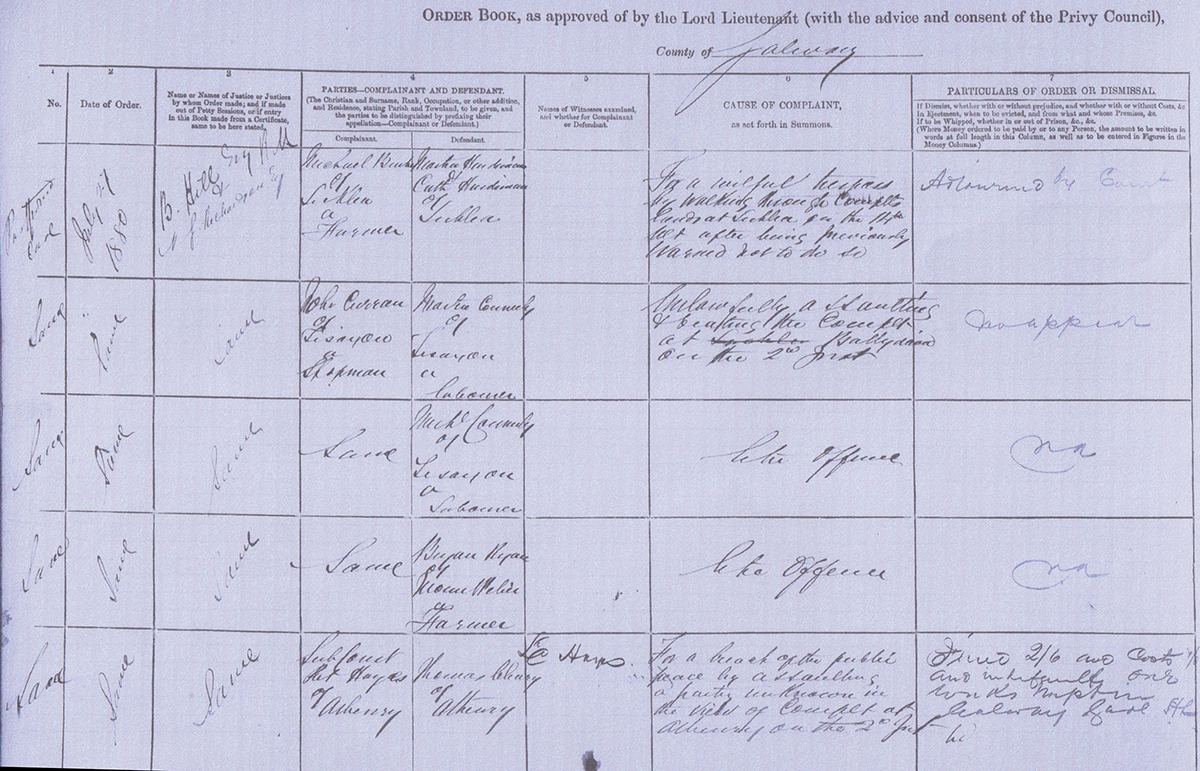 ORDER BOOK, as approved of by the Lord Lieutenant (with the advice and consent of the Privy Council),
County of Galway
1
2
3
4
5
6
7
No.
Date of Order.
Name or Names of Justice or Justices
by whom Order made; and if made
out of Petty Sessions, or if entry
in this Book made from a Certificate,
same to be here stated.
PARTIES—COMPLAINANT AND DEFENDANT.
(The Christian and Surname, Rank, Occupation, or other addition,
and Residence, stating Parish and Townland, to be given, and
the parties to be distinguished by prefixing their
appellation—Complainant or Defendant.)
Complainant.
Defendant.
Names of Witnesses examined,
and whether for Complainant
or Defendant.
CAUSE OF COMPLAINT,
as set forth in Summons.
PARTICULARS OF ORDER OR DISMISSAL
If Dismiss, whether with or without prejudice, and whether with or without Costs, &c
In Ejectment, when to be evicted, and from what and whose Premises, &c.
If to be Whipped, whether in or out of Prison, &c., &c.
(Where Money ordered to be paid by or to any Person, the amount to be written in
words at full length in this Column, as well as to be entered in Figures in the
Money Columns.)
case
July 27
1880
B. Hill Esq RM
Richardson Esq
Michael
of
a
Farmer
Martin Hardiman
&
Cath Hardiman
of
For a wilful trespass
by walking through Complts
lands at on the 14th
inst after being previously
warned not to do so
Adjourned by Court
Same
Same
Same
John Curran
of
Lisayon
a
Shopman
Martin Connely
of
Lisayon
a
Labourer
Unlawfully assaulting
& beating the Complt
at Ballydavid
on the 2nd Inst
no appear
Same
Same
Same
Same
Michl Connely
of
Lisayon
a
Labourer
Like Offence
na
Same
Same
Same
Same
Bryan Ryan
of
a
Farmer
Like Offence
na
Same
Same
Same
Sub Const
Hayes
of Athenry
Thomas Cleary
of
Athenry
Hayes
For a breach of the public
peace by assaulting
a party unknown in
the view of Complt at
Athenry on the 2nd Inst
Fined 2/6 and Costs 1/6
and in default one
weeks imptm
Galway Gaol HL